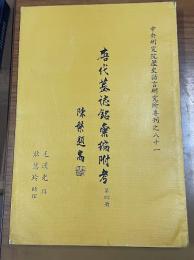 中央研究院歷史語言研究所專刊之八十一
唐代墓誌銘彙編附考
第四冊
陳槃題耑
毛漢光 撰